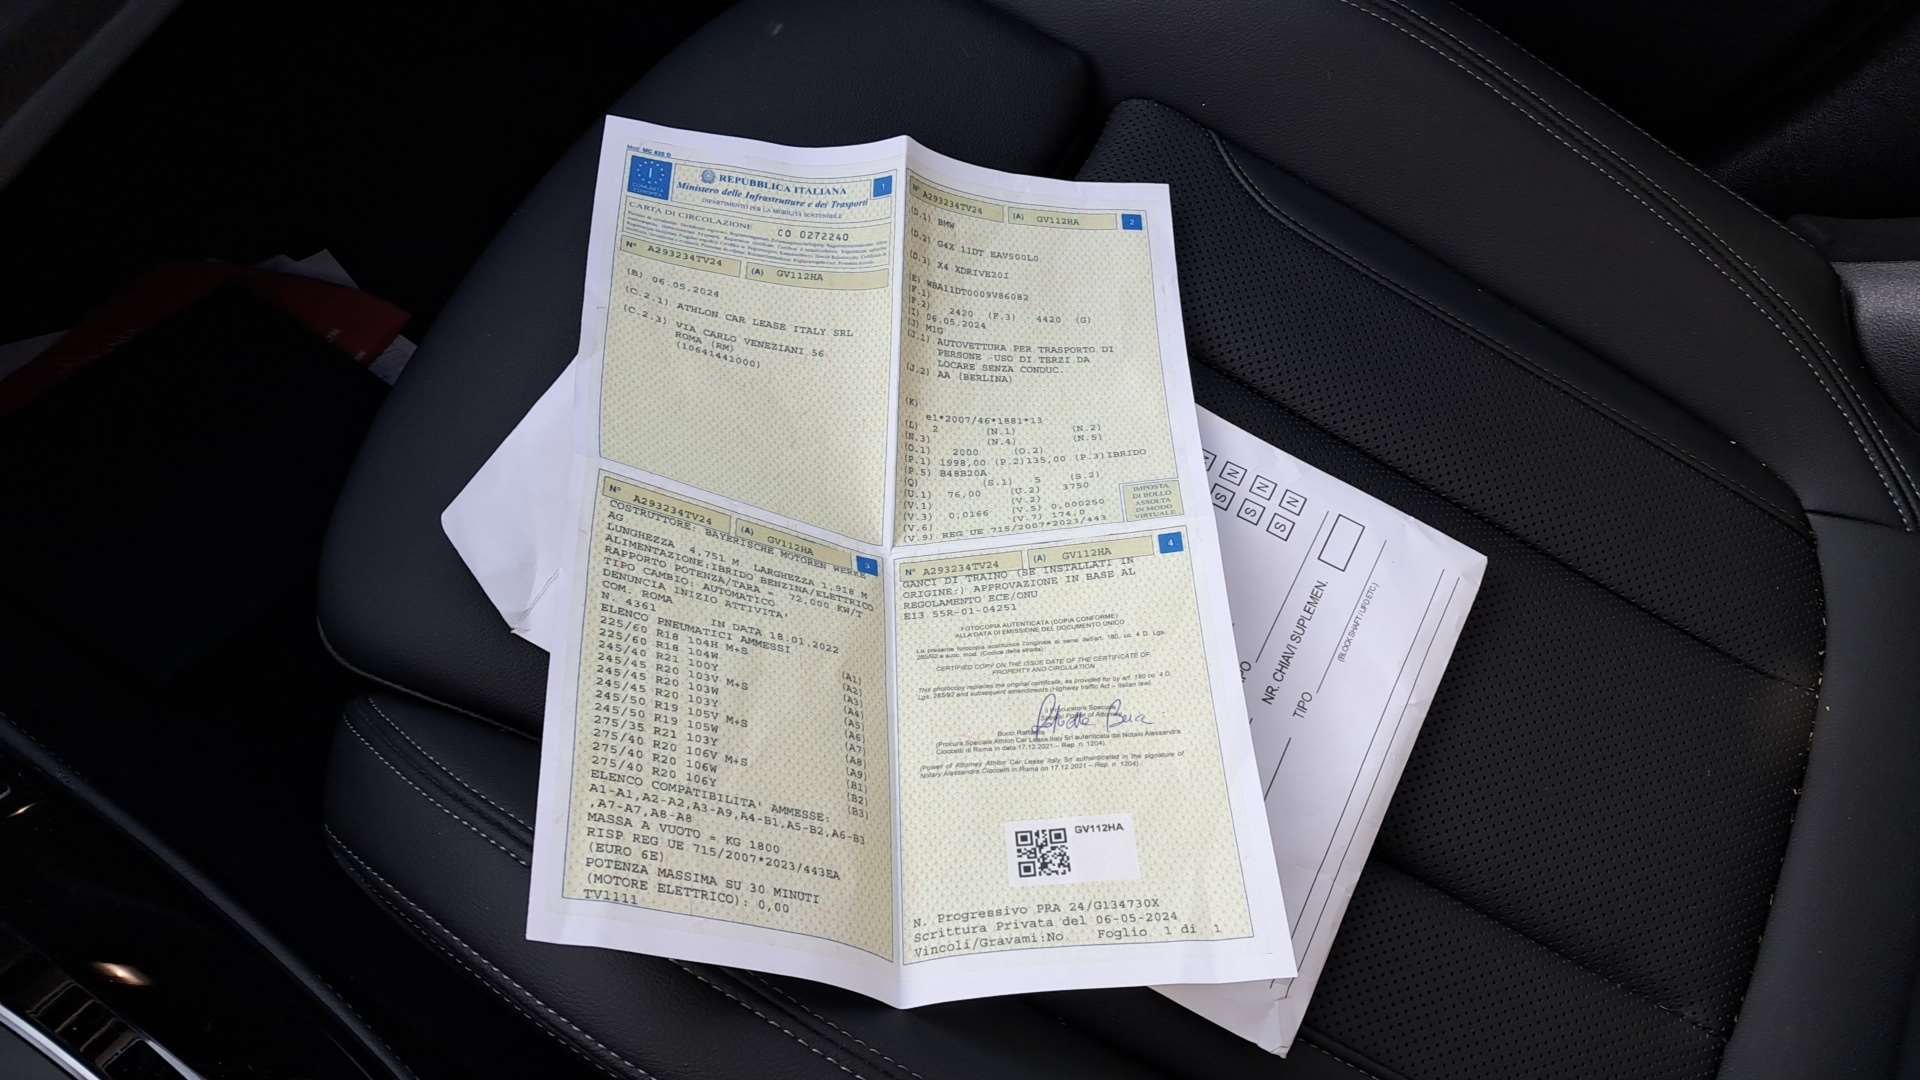 Mod. MC 820 D
I
COMUNITÀ EUROPEA
REPUBBLICA ITALIANA
Ministero delle Infrastrutture e dei Trasporti
DIPARTIMENTO PER LA MOBILITÀ SOSTENIBILE
1
CARTA DI CIRCOLAZIONE CO 0272240
N° A293234TV24 (A) GV112HA
(B) 06.05.2024
(C.2.1) ATHLON CAR LEASE ITALY SRL
(C.2.3) VIA CARLO VENEZIANI 56
ROMA (RM)
(10641441000)
N° A293234TV24 (A) GV112HA 2
(D.1) BMW
(D.2) G4X 11DT EAV500L0
(D.3) X4 XDRIVE20I
(E) WBA11DT0009V86082
(F.1)
(F.2) 2420 (F.3) 4420 (G)
(I) 06.05.2024
(J) M1G
(J.1) AUTOVETTURA PER TRASPORTO DI
PERSONE -USO DI TERZI DA
LOCARE SENZA CONDUC.
(J.2) AA (BERLINA)
(K)
e1*2007/46*1881*13
(L) 2 (N.1) (N.2)
(N.3) (N.4) (N.5)
(O.1) 2000 (O.2)
(P.1) 1998,00 (P.2)135,00 (P.3)IBRIDO
(P.5) B48B20A
(Q) (S.1) 5 (S.2)
(U.1) 76,00 (U.2) 3750
(V.1) (V.2)
(V.3) 0,0166 (V.5) 0,000250
(V.6) (V.7) 174,0
(V.9) REG UE 715/2007*2023/443
IMPOSTA
DI BOLLO
ASSOLTA
IN MODO
VIRTUALE
N° A293234TV24 (A) GV112HA 3
COSTRUTTORE: BAYERISCHE MOTOREN WERKE
AG
LUNGHEZZA 4,751 M LARGHEZZA 1,918 M
ALIMENTAZIONE:IBRIDO BENZINA/ELETTRICO
RAPPORTO POTENZA/TARA = 72,000 KW/T
TIPO CAMBIO: AUTOMATICO
DENUNCIA INIZIO ATTIVITA'
COM. ROMA
N. 4361 IN DATA 18.01.2022
ELENCO PNEUMATICI AMMESSI
225/60 R18 104H M+S (A1)
225/60 R18 104W (A2)
245/40 R21 100Y (A3)
245/45 R20 103V M+S (A4)
245/45 R20 103W (A5)
245/45 R20 103Y (A6)
245/50 R19 105V M+S (A7)
245/50 R19 105W (A8)
275/35 R21 103Y (A9)
275/40 R20 106V M+S (B1)
275/40 R20 106W (B2)
275/40 R20 106Y (B3)
ELENCO COMPATIBILITA' AMMESSE:
A1-A1,A2-A2,A3-A9,A4-B1,A5-B2,A6-B3
,A7-A7,A8-A8
MASSA A VUOTO = KG 1800
RISP REG UE 715/2007*2023/443EA
(EURO 6E)
POTENZA MASSIMA SU 30 MINUTI
(MOTORE ELETTRICO): 0,00
TV1111
N° A293234TV24 (A) GV112HA 4
GANCI DI TRAINO (SE INSTALLATI IN
ORIGINE:) APPROVAZIONE IN BASE AL
REGOLAMENTO ECE/ONU
E13 55R-01-04251
FOTOCOPIA AUTENTICATA (COPIA CONFORME)
ALLA DATA DI EMISSIONE DEL DOCUMENTO UNICO
La presente fotocopia sostituisce l'originale ai sensi dell'art. 180, co. 4 D. Lgs.
285/92 e succ. mod. (Codice della strada)
CERTIFIED COPY ON THE ISSUE DATE OF THE CERTIFICATE OF
PROPERTY AND CIRCULATION
This photocopy replaces the original certificate, as provided for by art. 180 co. 4 D.
Lgs. 285/92 and subsequent amendments (Highway traffic Act – Italian law).
Il Procuratore Speciale
Special Power of Attorney
Bucci
(Procura Speciale Athlon Car Lease Italy Srl autenticata dal Notaio Alessandra
Ciocietti di Roma in data 17.12.2021 – Rep. n. 1204).
(Power of Attorney Athlon Car Lease Italy Srl authenticated in the signature of
Notary Alessandra Ciocietti in Rome on 17.12.2021 – Rep. n. 1204).
GV112HA
N. Progressivo PRA 24/G134730X
Scrittura Privata del 06-05-2024
Vincoli/Gravami:No Foglio 1 di 1
N N N
S S S
NR. CHIAVI SUPLEMEN.
TIPO
(BLOCK SHAFT / UFO ETC)